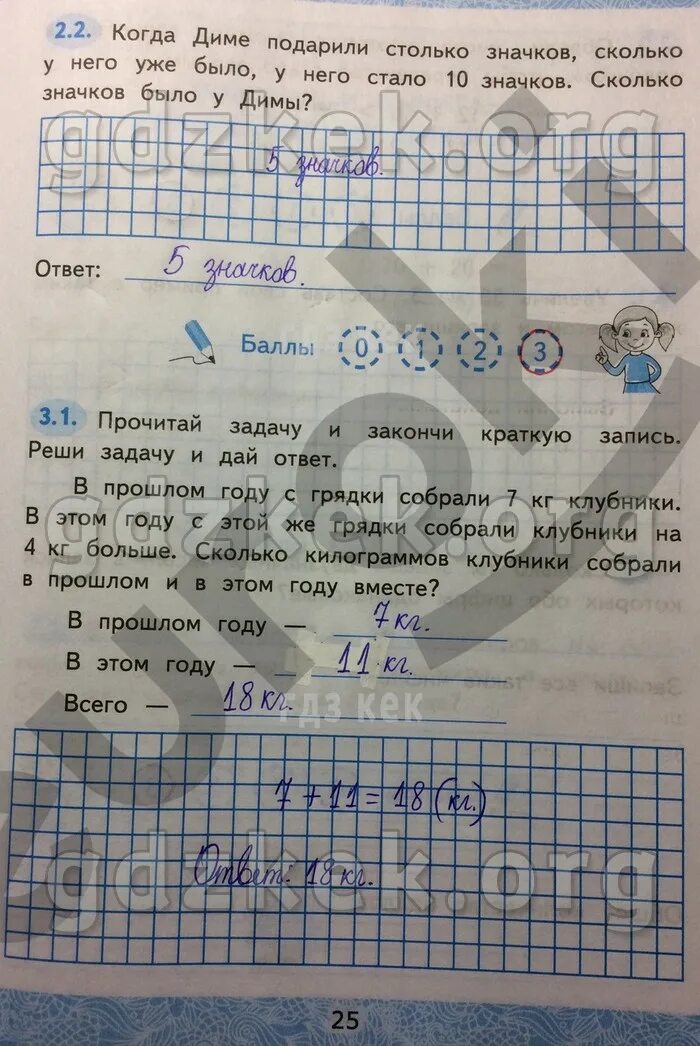 2.2. Когда Диме подарили столько значков, сколько
у него уже было, у него стало 10 значков. Сколько
значков было у Димы?
gdzkek.org
5 значков.
Ответ: 5 значков.
Баллы 0 1 2 3
3.1. Прочитай задачу и закончи краткую запись.
Реши задачу и дай ответ.
В прошлом году с грядки собрали 7 кг клубники.
gdzkek.org
В этом году с этой же грядки собрали клубники на
4 кг больше. Сколько килограммов клубники собрали
в прошлом и в этом году вместе?
В прошлом году — 7 кг.
В этом году — 11 кг.
Всего — 18 кг.
гдз кек
7 + 11 = 18 (кг.)
Ответ: 18 кг.
gdzkek.org
25